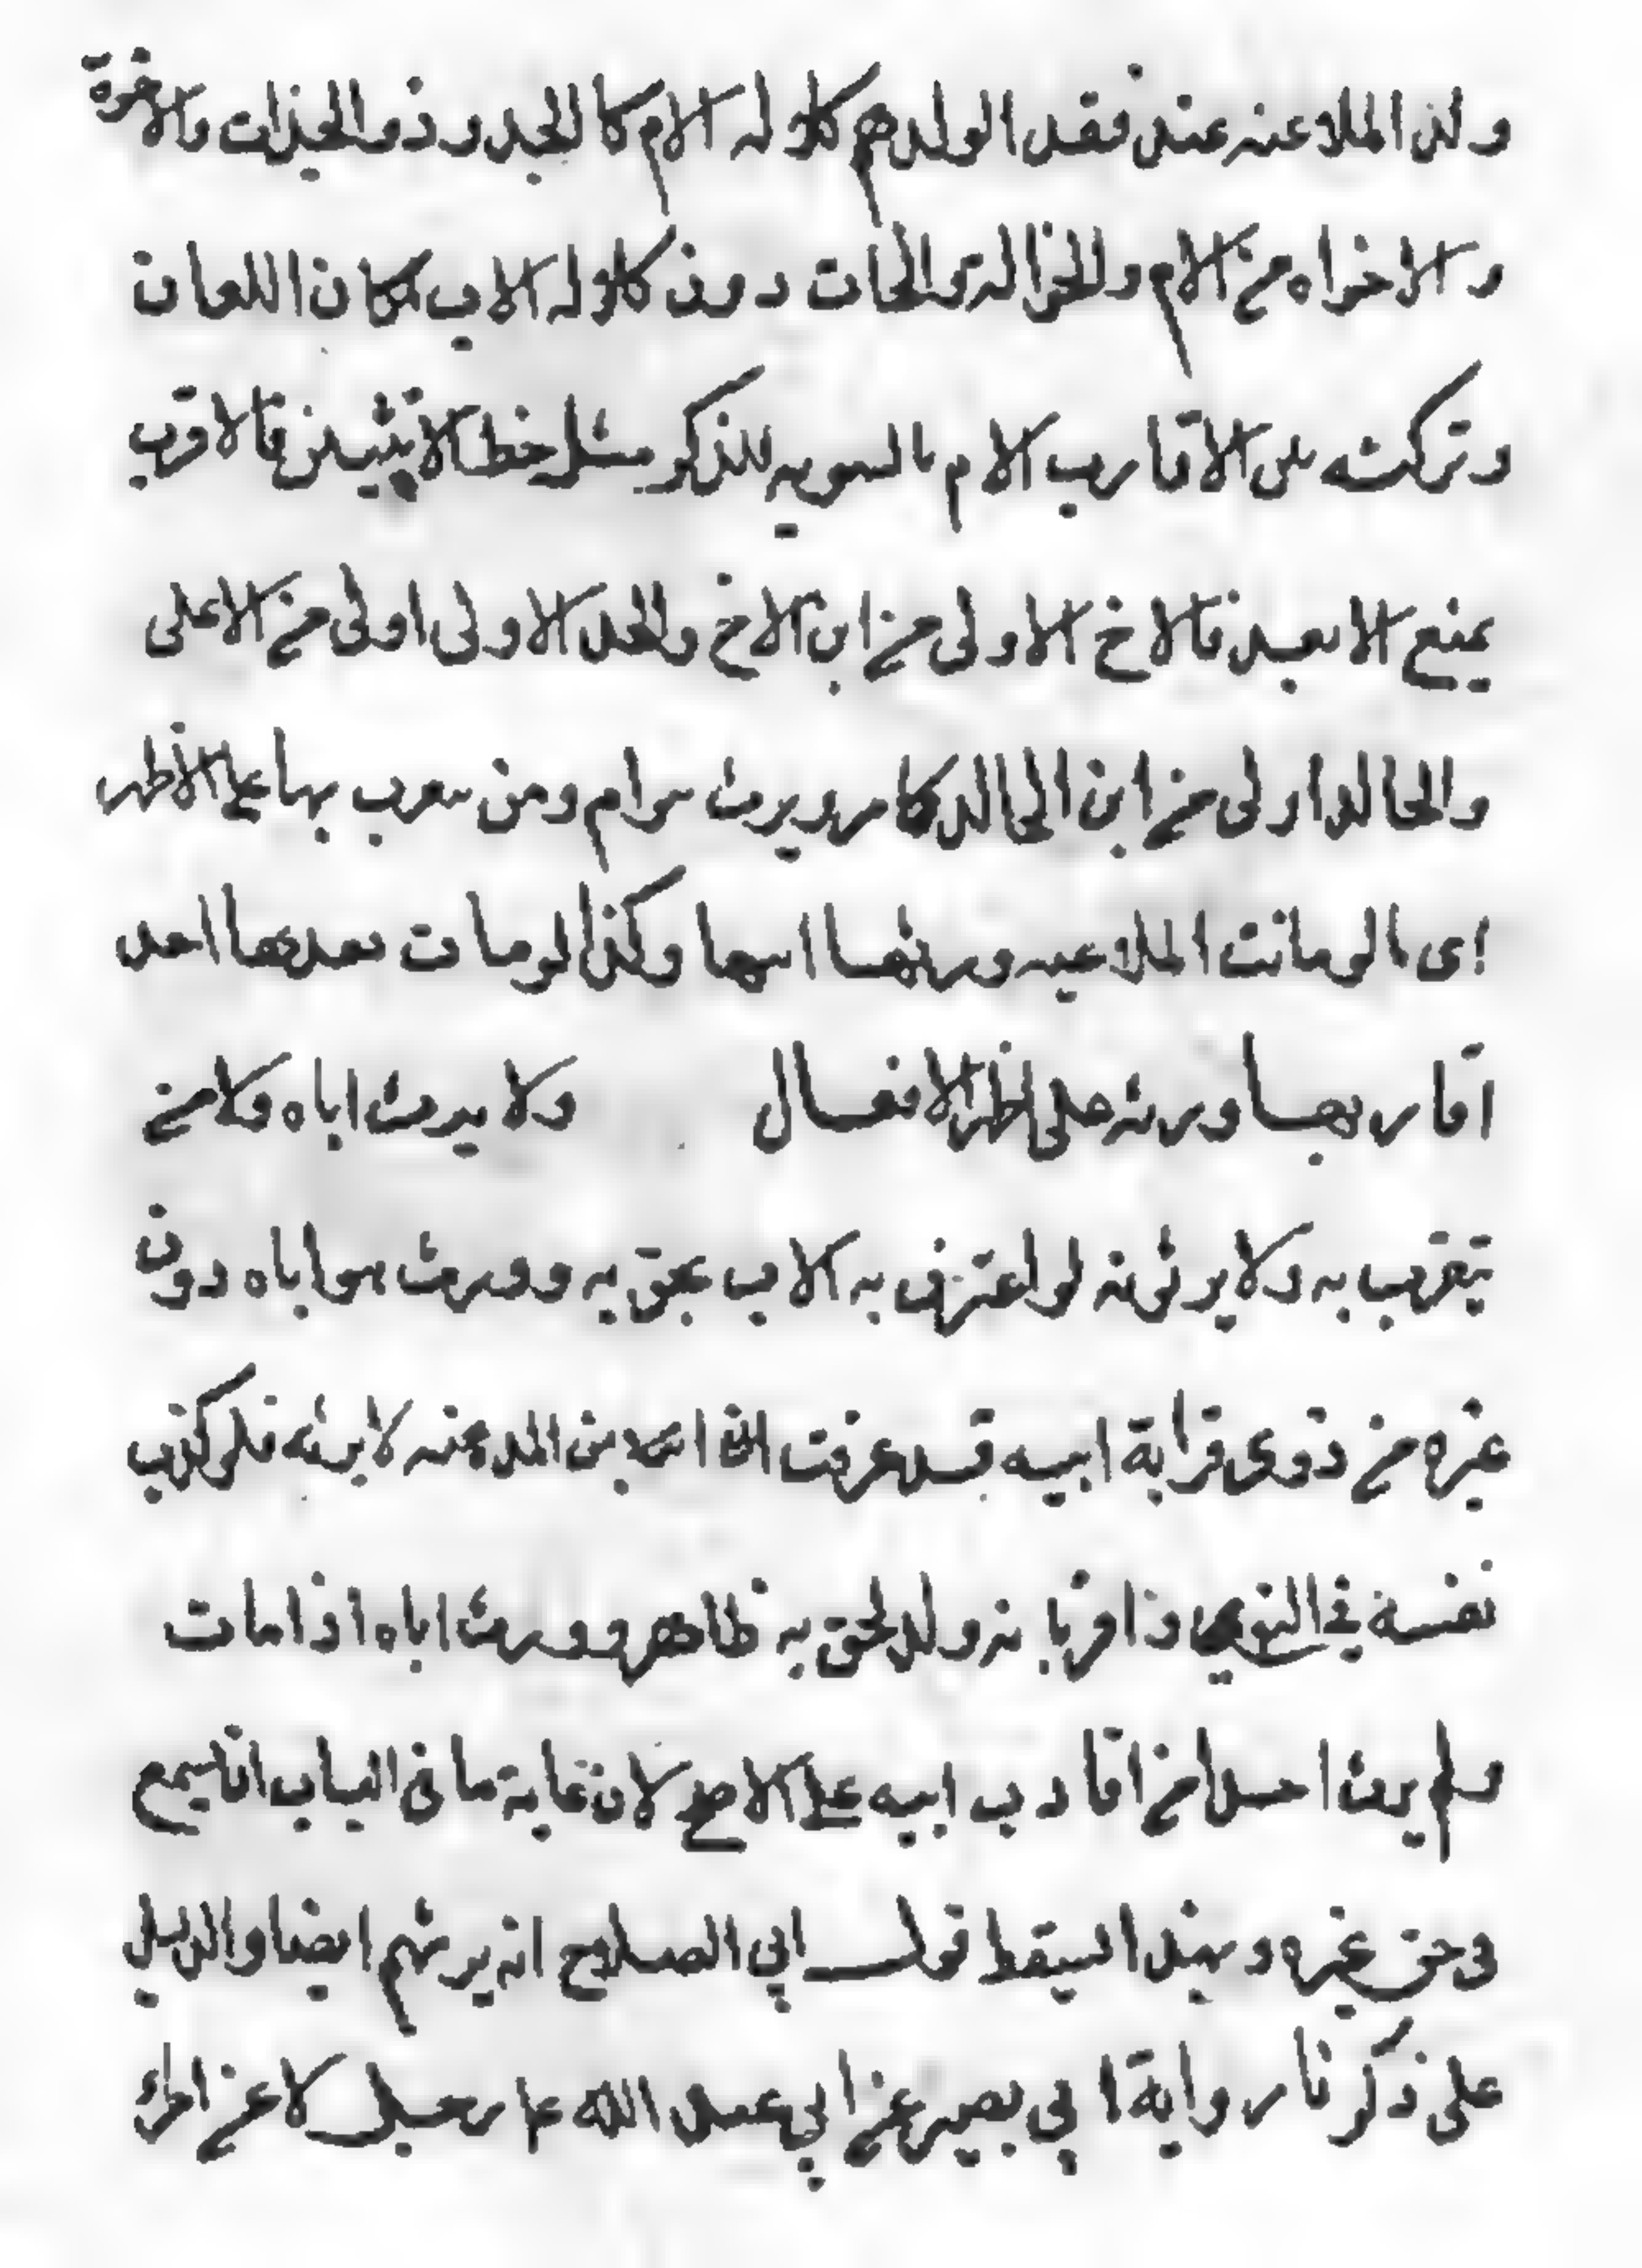 ولذا الملاعنه عند فقد الولد هم كلاله الام كالجد وذو الجذات والاخوة
والاخواه من الام والخوالة والخات دون كلاله الاب لمكان اللعان
وتركته بين الاقارب الام بالسويه للذكر مثل حظ الانثيين فالاقرب
يمنع الابعد فالاخ الاولى من ابن الاخ والجد الاولى اولى من الاعلى
والخالد اولى من ابن الخالد كامر ويرث سوام ومن يتقرب بها على الاظهر
اى الو ماتت الملاعيه ورثها ابنها وكذا لو مات بعدها احد
اقاربها ورثه على اظهر الافعال ولا يرث اباه ولا من
يتقرب به ولا يرثونه لو اعترف به الاب يحق به وورث هو اباه دون
غيره من ذوى قرابة ابيه قد عرفت ان بن الملاعنه لا يرثه فلو كذب
نفسه في النوى ذا اقر بانه ولد لحق به ظاهر وورث اباه اذا مات
ولم يرث احدا من اقارب ابيه على الاصح لان غاية ما فى الباب انا يسمع
فى حق غيره وبهذا السقط قول ابي الصلاح انه يرثهم ايضا والدليل
على ذكرنا رواية ابي بصير عن ابي عبد الله عا رجل لاعن امراة